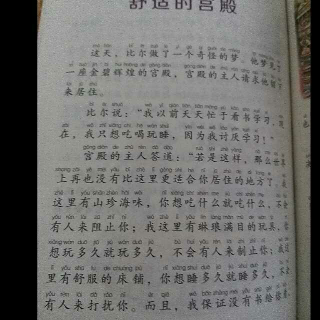 舒适的宫殿
这天，比尔做了一个奇怪的梦，他梦见了
一座金碧辉煌的宫殿，宫殿的主人请求他留
来居住。
比尔说：“我以前天天忙于看书学习，
在，我只想吃喝玩睡，因为我讨厌学习！”
宫殿的主人答道：“若是这样，那么世
上再也没有比这里更适合你居住的地方了。我
这里有山珍海味，你想吃什么就吃什么，不会
有人来阻止你；我这里有琳琅满目的玩具，
想玩多久就玩多久，不会有人来制止你；我
里有舒服的床铺，你想睡多久就睡多久，不
有人来打扰你。而且，我保证没有书给你看